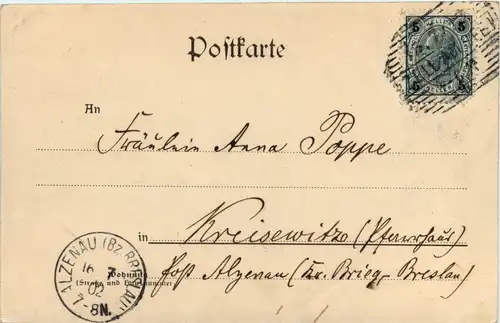 Postkarte
5 5
An
Fräulein Anna Poppe
in Kreisewitz (Pfarrhaus)
Post Alzenau (Kr. Brieg-Breslau)
Wohnung
(Straße und Hausnummer)
ALZENAU (BZ.BRESLAU)
16 7
02
7-8N.